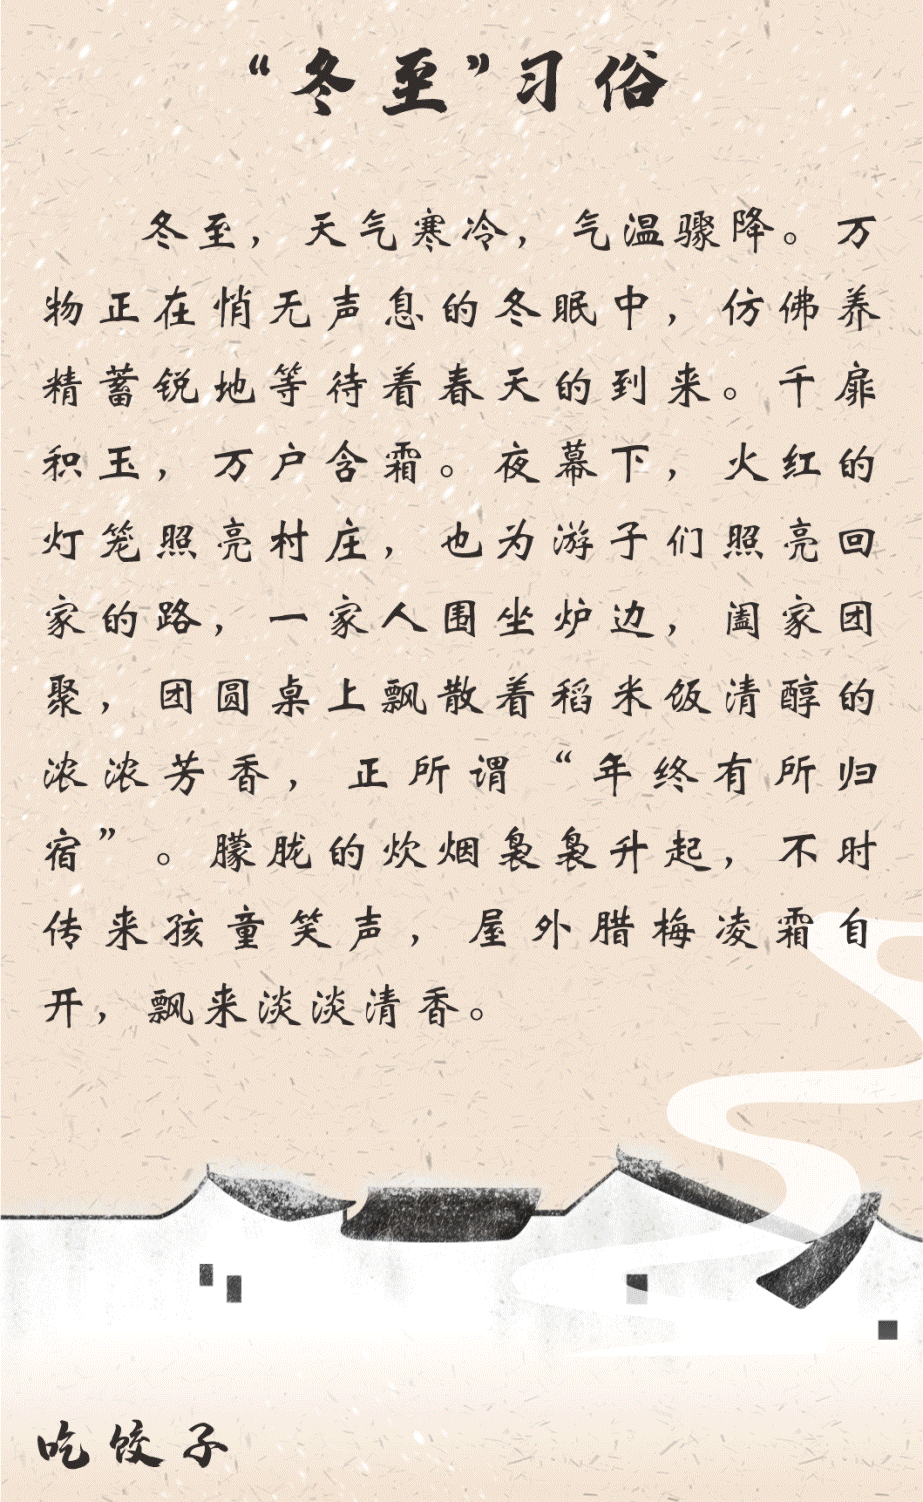 “冬至”习俗
冬至，天气寒冷，气温骤降。万
物正在悄无声息的冬眠中，仿佛养
精蓄锐地等待着春天的到来。千扉
积玉，万户含霜。夜幕下，火红的
灯笼照亮村庄，也为游子们照亮回
家的路，一家人围坐炉边，阖家团
聚，团圆桌上飘散着稻米饭清醇的
浓浓芳香，正所谓“年终有所归
宿”。朦胧的炊烟袅袅升起，不时
传来孩童笑声，屋外腊梅凌霜自
开，飘来淡淡清香。
吃饺子